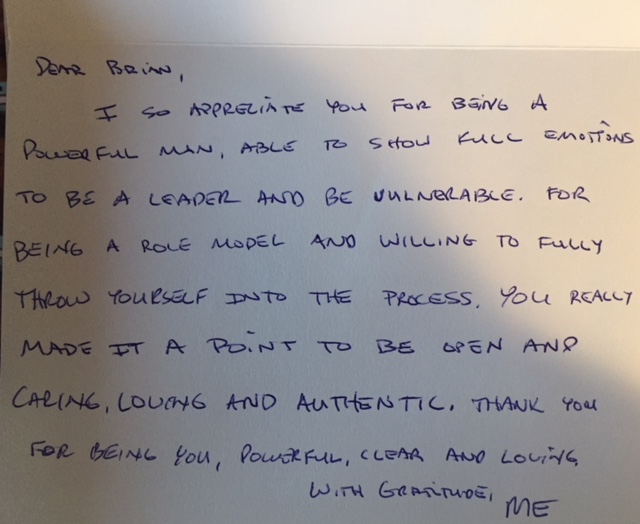 DEAR BRIAN,
I SO APPRECIATE YOU FOR BEING A
POWERFUL MAN, ABLE TO SHOW FULL EMOTIONS
TO BE A LEADER AND BE VULNERABLE. FOR
BEING A ROLE MODEL AND WILLING TO FULLY
THROW YOURSELF INTO THE PROCESS. YOU REALLY
MADE IT A POINT TO BE OPEN AND
CARING, LOVING AND AUTHENTIC. THANK YOU
FOR BEING YOU, POWERFUL, CLEAR AND LOVING.
WITH GRATITUDE,
ME